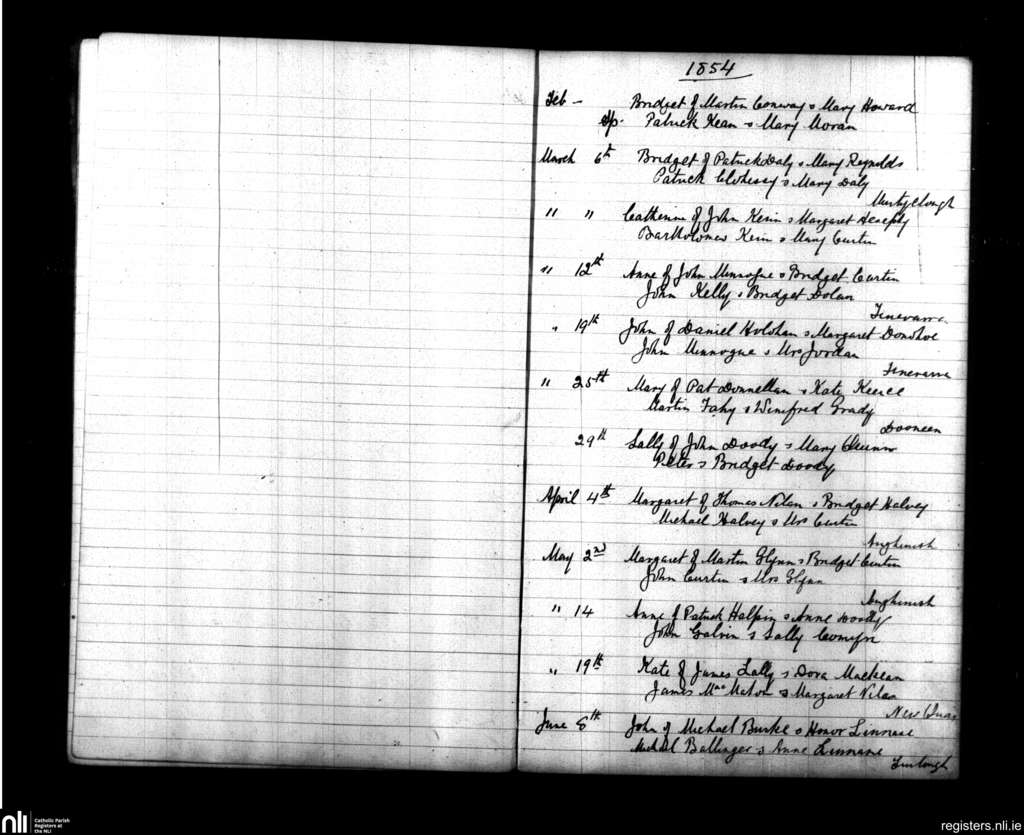 1854
Feb – Bridget of Martin Conway & Mary Howard
Sp. Patrick Kean & Mary Moran
March 6th Bridget of Patrick Daly & Mary Reynolds
Patrick & Mary Daly
" " Catherine of John Kerin & Margaret
Bartholomew Kerin & Mary Curtin
" 12th Anne of John Minnogue & Bridget Curtin
John Kelly & Bridget Dolan
Finevarra
" 19th John of Daniel Holohan & Margaret Donohoe
John Minnogue & Mrs Jordan
Finevarra
" 25th Mary of Pat Donnellan & Kate
Martin Fahy & Winifred Grady
Dooneen
29th Sally of John Doody & Mary Quinn
Peter & Bridget Doody
April 4th Margaret of Thomas Nilan & Bridget Halvey
Michael Halvey & Mrs Curtin
Aughinish
May 2nd Margaret of Martin Glynn & Bridget Curtin
John Curtin & Mrs Glynn
Aughinish
" 14 Anne of Patrick Halpin & Anne Doody
John Galvin & Sally
" 19th Kate of James Lally & Dora
James MacMahon & Margaret Nilan
New Quay
June 8th John of Michael Burke & Honor Linnane
Michael Ballinger & Anne Linnane
nli
Catholic Parish
Registers at
the NLI
registers.nli.ie